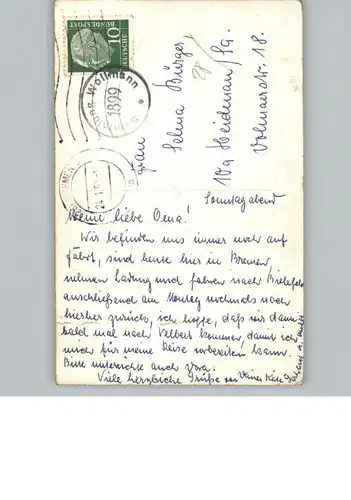 10
DEUTSCHE BUNDESPOST
Wollmann
1899
Frau
Selma Bürger
10a Heidenau/Sa.
Volmaerstr. 18.
Sonntagabend
Meine liebe Oma!
Wir befinden uns immer noch auf
Fahrt, sind heute hier in Bremen,
nehmen Ladung und fahren nach Bielefeld
anschließend am Montag nochmals nach
hierher zurück, ich hoffe, daß wir dann
bald mal nach Velbert kommen, damit ich
mich für meine Reise vorbereiten kann.
Bitte unterrichte auch Vera.
Viele herzliche Grüße von Deiner Käte